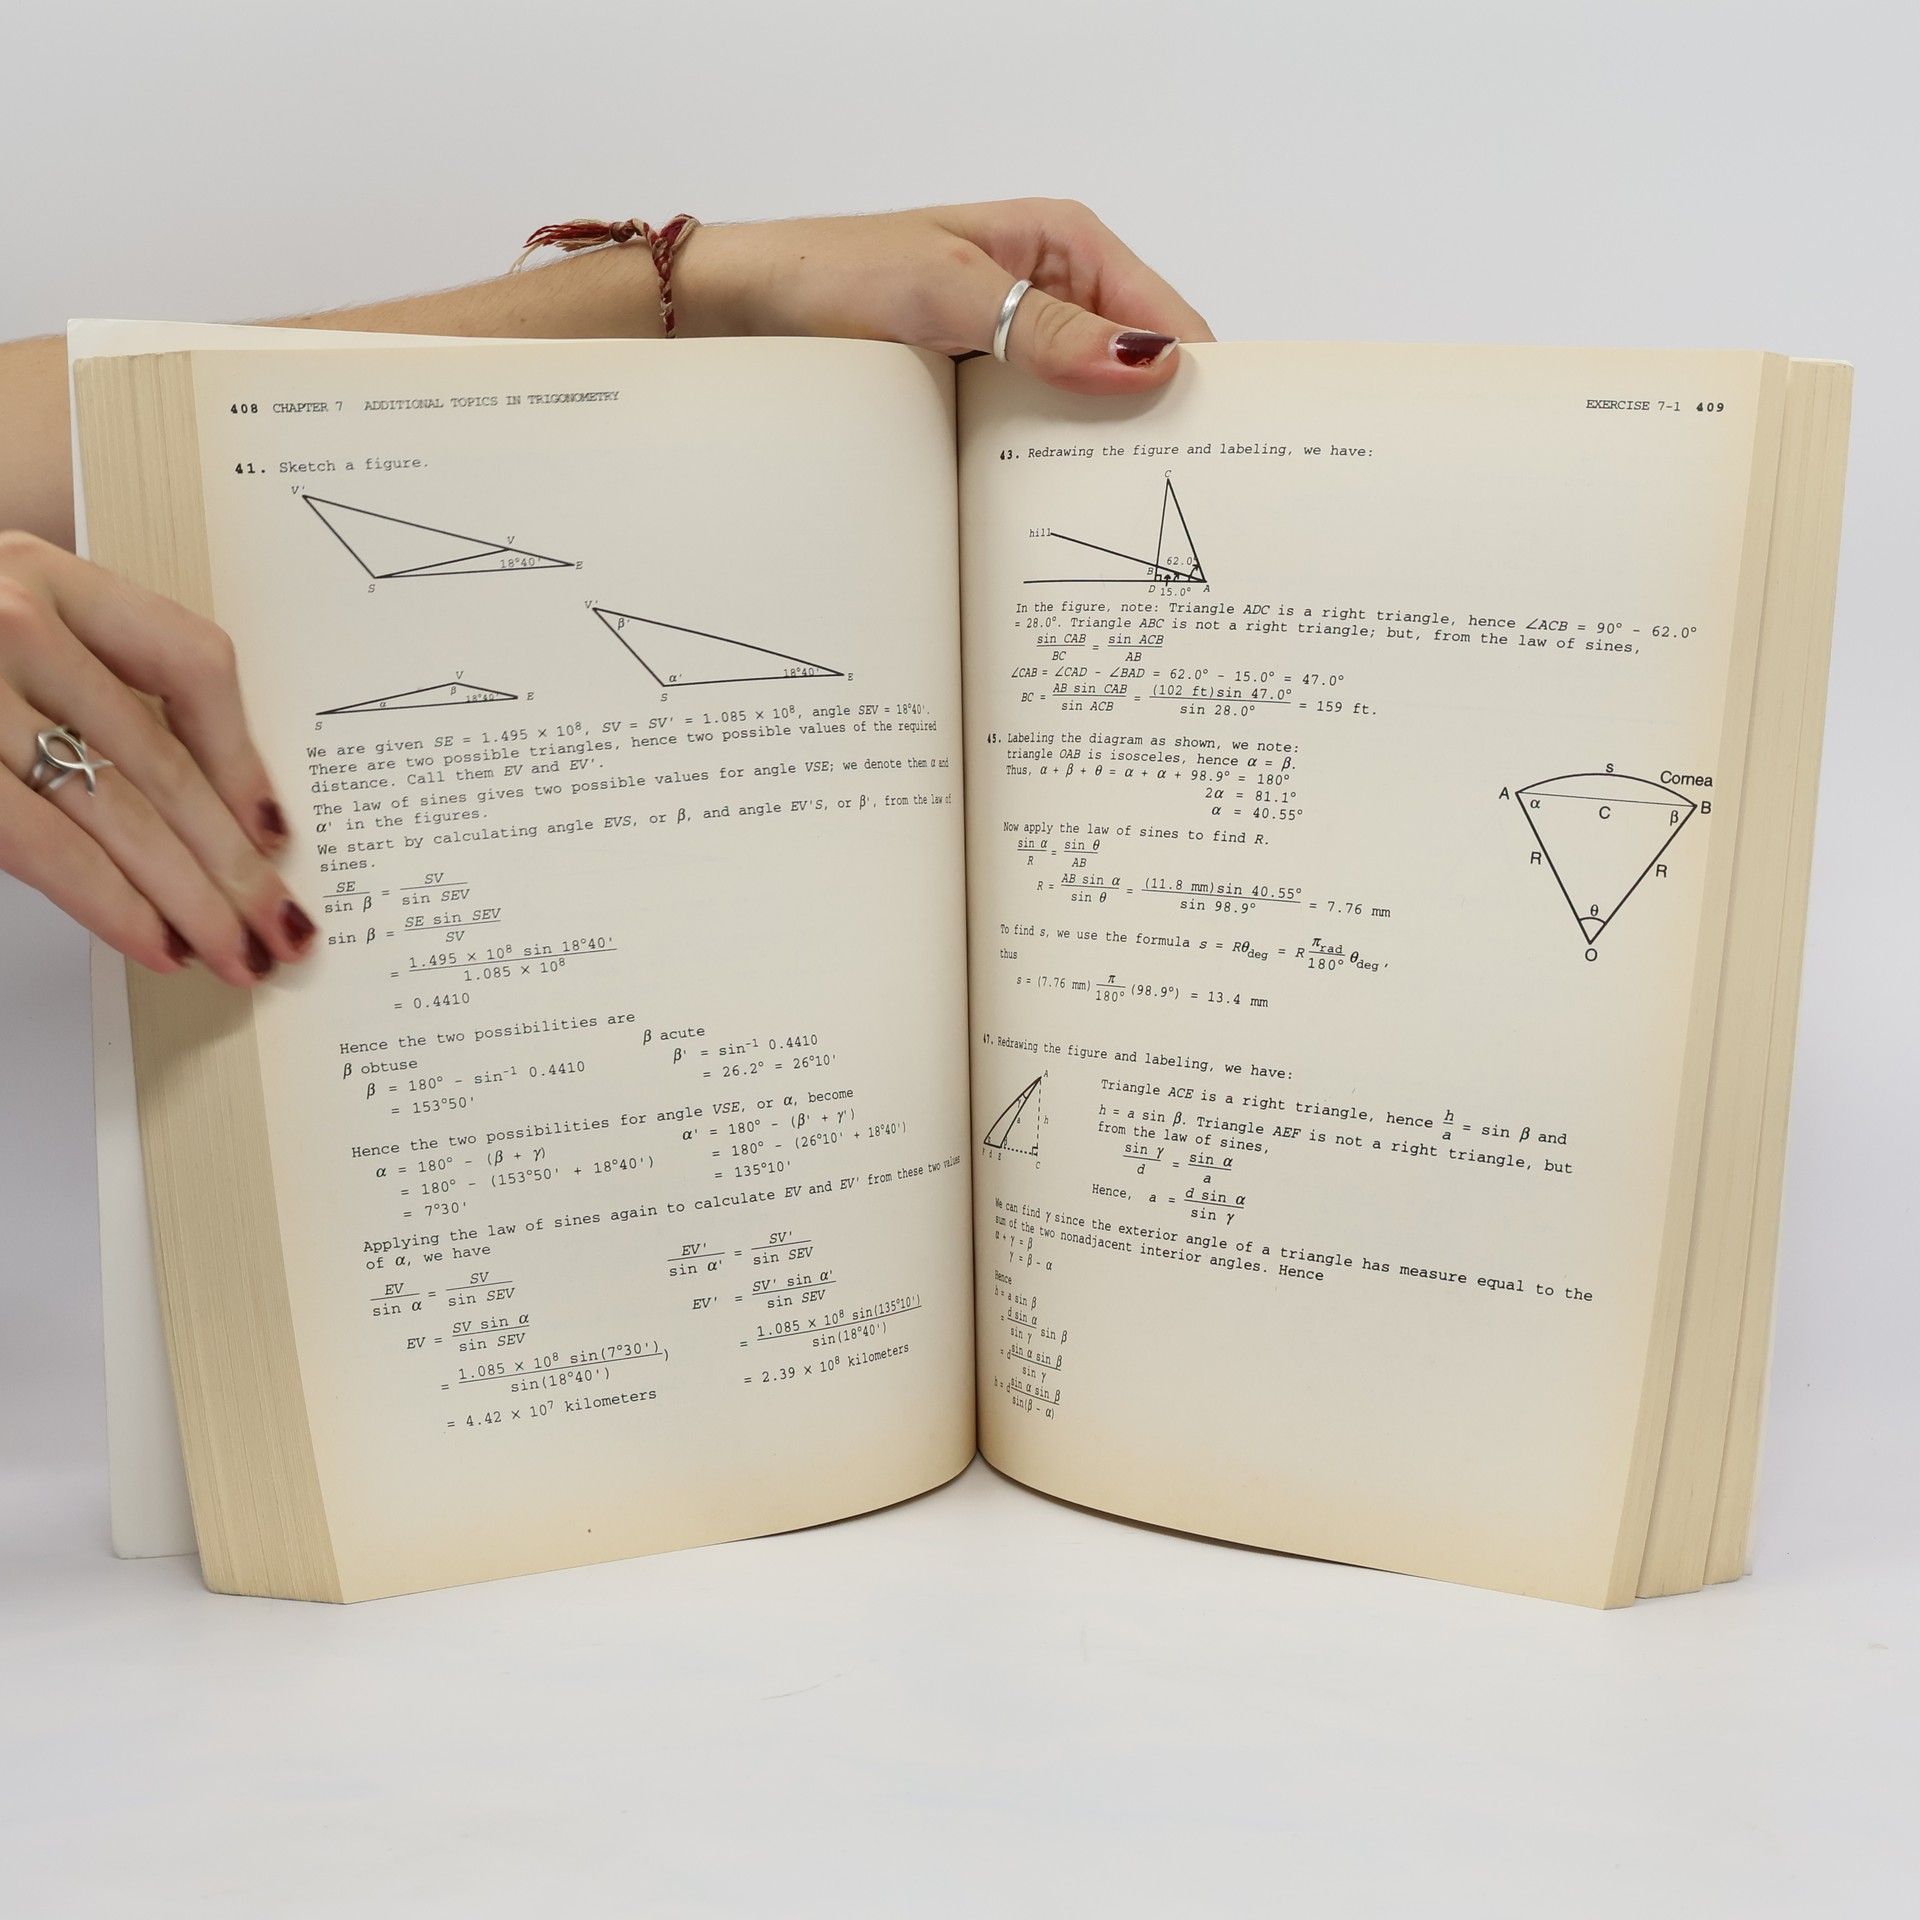 408 CHAPTER 7 ADDITIONAL TOPICS IN TRIGONOMETRY
41. Sketch a figure.
V'
V
18°40'
E
S
V'
β'
α'
18°40'
E
S
V
β
α
18°40'
E
S
We are given SE = 1.495 × 10⁸, SV = SV' = 1.085 × 10⁸, angle SEV = 18°40'.
There are two possible triangles, hence two possible values of the required
distance. Call them EV and EV'.
The law of sines gives two possible values for angle VSE; we denote them α and
α' in the figures.
We start by calculating angle EVS, or β, and angle EV'S, or β', from the law of
sines.
SE/sin β = SV/sin SEV
sin β = SE sin SEV/SV
= 1.495 × 10⁸ sin 18°40'/1.085 × 10⁸
= 0.4410
Hence the two possibilities are
β obtuse
β = 180° - sin⁻¹ 0.4410
= 153°50'
β acute
β' = sin⁻¹ 0.4410
= 26.2° = 26°10'
Hence the two possibilities for angle VSE, or α, become
α = 180° - (β + γ)
= 180° - (153°50' + 18°40')
= 7°30'
α' = 180° - (β' + γ')
= 180° - (26°10' + 18°40')
= 135°10'
Applying the law of sines again to calculate EV and EV' from these two values
of α, we have
EV/sin α = SV/sin SEV
EV = SV sin α/sin SEV
= 1.085 × 10⁸ sin(7°30')/sin(18°40') )
= 4.42 × 10⁷ kilometers
EV'/sin α' = SV'/sin SEV
EV' = SV' sin α'/sin SEV
= 1.085 × 10⁸ sin(135°10')/sin(18°40')
= 2.39 × 10⁸ kilometers
EXERCISE 7-1 409
43. Redrawing the figure and labeling, we have:
C
hill
62.0°
B
D 15.0° A
In the figure, note: Triangle ADC is a right triangle, hence ∠ACB = 90° - 62.0°
= 28.0°. Triangle ABC is not a right triangle; but, from the law of sines,
sin CAB/BC = sin ACB/AB
∠CAB = ∠CAD - ∠BAD = 62.0° - 15.0° = 47.0°
BC = AB sin CAB/sin ACB = (102 ft)sin 47.0°/sin 28.0° = 159 ft.
45. Labeling the diagram as shown, we note:
triangle OAB is isosceles, hence α = β.
Thus, α + β + θ = α + α + 98.9° = 180°
2α = 81.1°
α = 40.55°
Now apply the law of sines to find R.
sin α/R = sin θ/AB
R = AB sin α/sin θ = (11.8 mm)sin 40.55°/sin 98.9° = 7.76 mm
To find s, we use the formula s = Rθdeg = R πrad/180° θdeg,
thus
s = (7.76 mm) π/180° (98.9°) = 13.4 mm
s
Cornea
A
α
C
β
B
R
R
θ
O
47. Redrawing the figure and labeling, we have:
A
a
h
F d E
C
Triangle ACE is a right triangle, hence h/a = sin β and
h = a sin β. Triangle AEF is not a right triangle, but
from the law of sines,
sin γ/d = sin α/a
Hence, a = d sin α/sin γ
We can find γ since the exterior angle of a triangle has measure equal to the
sum of the two nonadjacent interior angles. Hence
α + γ = β
γ = β - α
Hence
h = a sin β
= d sin α/sin γ sin β
= d sin α sin β/sin γ
h = d sin α sin β/sin(β - α)